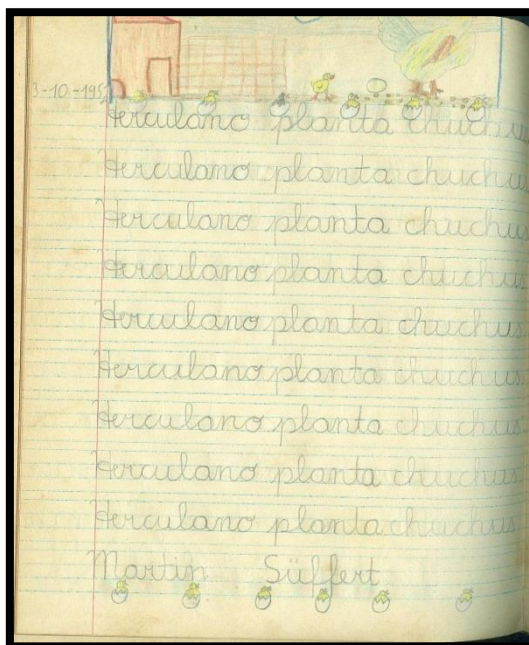 3-10-195
Herculano planta chuchus.
Herculano planta chuchus.
Herculano planta chuchus.
Herculano planta chuchus.
Herculano planta chuchus.
Herculano planta chuchus.
Herculano planta chuchus.
Herculano planta chuchus.
Herculano planta chuchus.
Martin Süffert